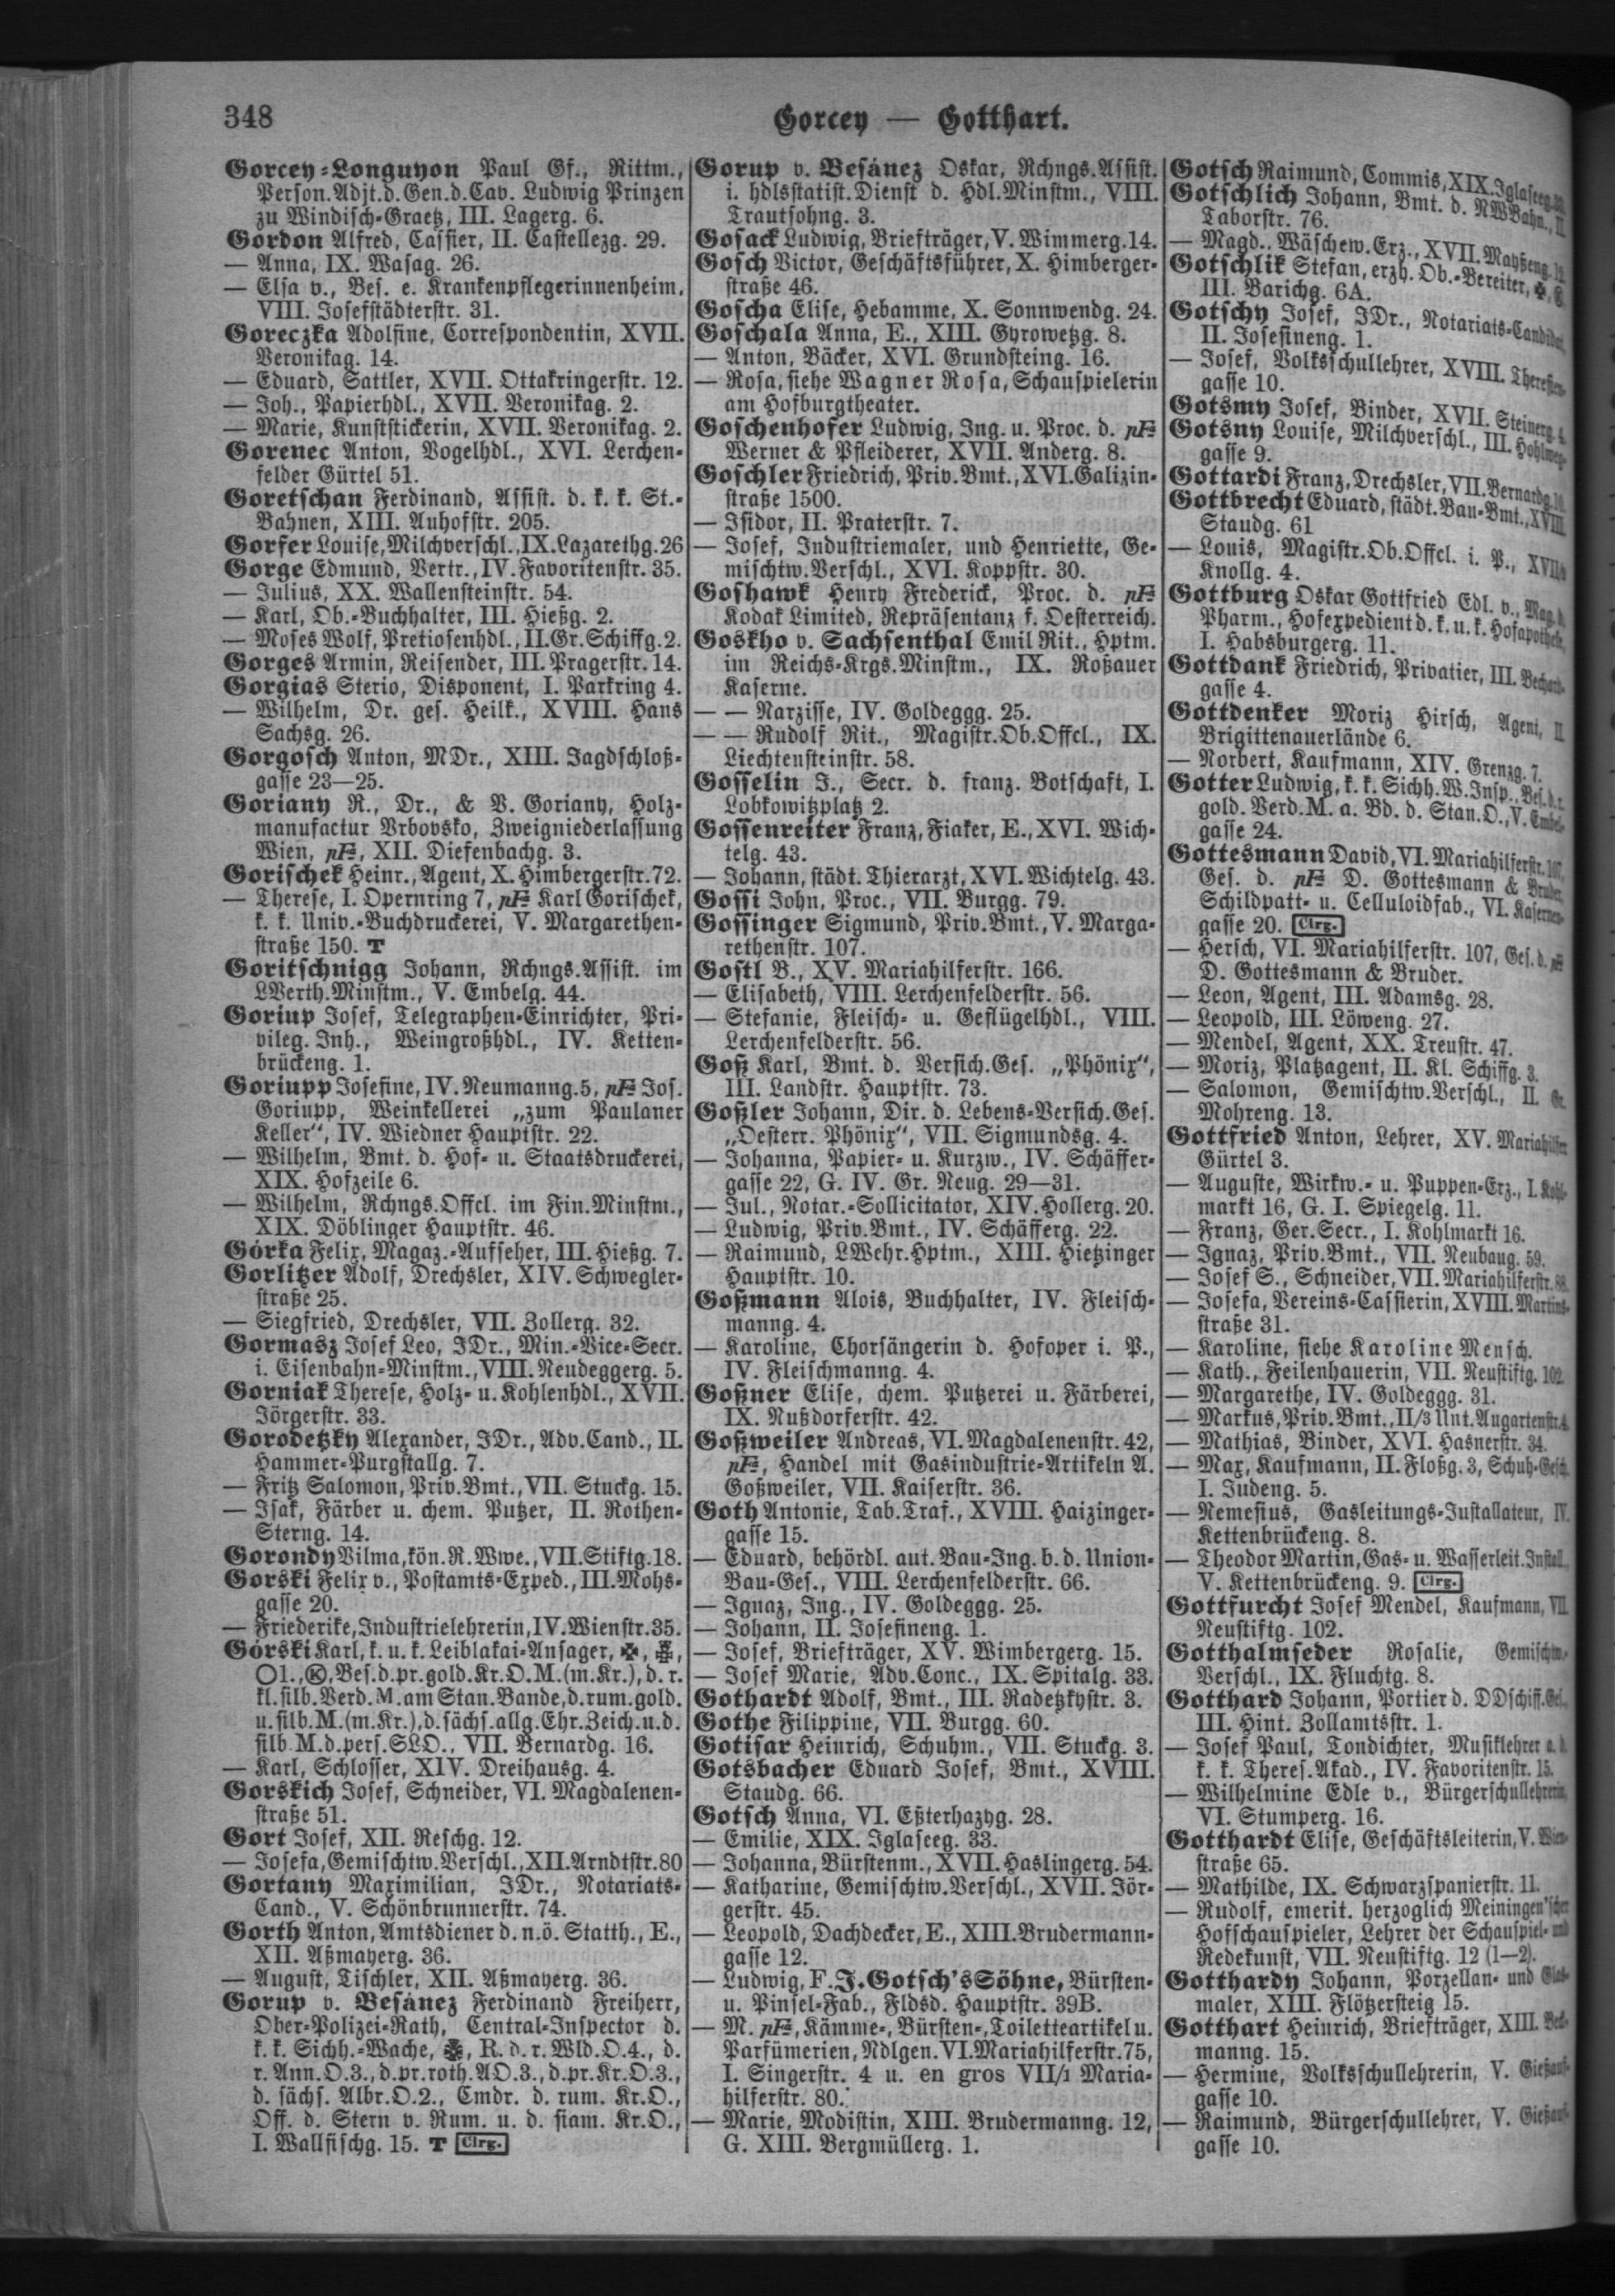 348
Gorcey — Gotthart.
Gorcey-Longuyon Paul Gf., Rittm.,
Person.Adjt.d.Gen.d.Cav. Ludwig Prinzen
zu Windisch-Graetz, III. Lagerg. 6.
Gordon Alfred, Cassier, II. Castellezg. 29.
— Anna, IX. Wasag. 26.
— Elsa v., Bes. e. Krankenpflegerinnenheim,
VIII. Josefstädterstr. 31.
Goreczka Adolfine, Correspondentin, XVII.
Veronikag. 14.
— Eduard, Sattler, XVII. Ottakringerstr. 12.
— Joh., Papierhdl., XVII. Veronikag. 2.
— Marie, Kunststickerin, XVII. Veronikag. 2.
Gorenec Anton, Vogelhdl., XVI. Lerchen-
felder Gürtel 51.
Goretschan Ferdinand, Assist. d. k. k. St.-
Bahnen, XIII. Auhofstr. 205.
Gorfer Louise, Milchverschl., IX. Lazarethg. 26
Gorge Edmund, Vertr., IV. Favoritenstr. 35.
— Julius, XX. Wallensteinstr. 54.
— Karl, Ob.-Buchhalter, III. Hießg. 2.
— Moses Wolf, Pretiosenhdl., II. Gr. Schiffg. 2.
Gorges Armin, Reisender, III. Pragerstr. 14.
Gorgias Sterio, Disponent, I. Parkring 4.
— Wilhelm, Dr. ges. Heilk., XVIII. Hans
Sachsg. 26.
Gorgosch Anton, MDr., XIII. Jagdschloß-
gasse 23—25.
Goriany R., Dr., & V. Goriany, Holz-
manufactur Vrbovsko, Zweigniederlassung
Wien, pF, XII. Diefenbachg. 3.
Gorischek Heinr., Agent, X. Himbergerstr. 72.
— Therese, I. Opernring 7, pF Karl Gorischek,
k. k. Univ.-Buchdruckerei, V. Margarethen-
straße 150. T
Goritschnigg Johann, Rchngs.Assist. im
LVerth.Minstm., V. Embelg. 44.
Goriup Josef, Telegraphen-Einrichter, Pri-
vileg. Inh., Weingroßhdl., IV. Ketten-
brückeng. 1.
Goriupp Josefine, IV. Neumanng. 5, pF Jos.
Goriupp, Weinkellerei „zum Paulaner
Keller“, IV. Wiedner Hauptstr. 22.
— Wilhelm, Bmt. d. Hof- u. Staatsdruckerei,
XIX. Hofzeile 6.
— Wilhelm, Rchngs.Offcl. im Fin.Minstm.,
XIX. Döblinger Hauptstr. 46.
Górka Felix, Magaz.-Aufseher, III. Hießg. 7.
Gorlitzer Adolf, Drechsler, XIV. Schwegler-
straße 25.
— Siegfried, Drechsler, VII. Zollerg. 32.
Gormasz Josef Leo, JDr., Min.-Vice-Secr.
i. Eisenbahn-Minstm., VIII. Neudeggerg. 5.
Gorniak Therese, Holz- u. Kohlenhdl., XVII.
Jörgerstr. 33.
Gorodetzky Alexander, JDr., Adv.Cand., II.
Hammer-Purgstallg. 7.
— Fritz Salomon, Priv.Bmt., VII. Stuckg. 15.
— Isak, Färber u. chem. Putzer, II. Rothen-
Sterng. 14.
Gorondy Vilma, kön. R. Wwe., VII. Stiftg. 18.
Gorski Felix v., Postamts-Exped., III. Mohs-
gasse 20.
— Friederike, Industrielehrerin, IV. Wienstr. 35.
Górski Karl, k. u. k. Leiblakai-Ansager,
O1., K, Bes.d.pr.gold.Kr.O.M.(m.Kr.), d. r.
kl.silb.Verd.M.am Stan.Bande, d.rum.gold.
u.silb.M.(m.Kr.), d.sächs.allg.Ehr.Zeich.u.d.
silb.M.d.pers.SLO., VII. Bernardg. 16.
— Karl, Schlosser, XIV. Dreihausg. 4.
Gorskich Josef, Schneider, VI. Magdalenen-
straße 51.
Gort Josef, XII. Reschg. 12.
— Josefa, Gemischtw.Verschl., XII. Arndtstr. 80
Gortany Maximilian, JDr., Notariats-
Cand., V. Schönbrunnerstr. 74.
Gorth Anton, Amtsdiener d. n.ö. Statth., E.,
XII. Aßmayerg. 36.
— August, Tischler, XII. Aßmayerg. 36.
Gorup v. Besánez Ferdinand Freiherr,
Ober-Polizei-Rath, Central-Inspector d.
k. k. Sichh.-Wache, R. d. r. Wld.O.4., d.
r. Ann.O.3., d.pr.roth.AO.3., d.pr.Kr.O.3.,
d. sächs. Albr.O.2., Cmdr. d. rum. Kr.O.,
Off. d. Stern v. Rum. u. d. siam. Kr.O.,
I. Wallfischg. 15. T Clrg.
Gorup v. Besánez Oskar, Rchngs.Assist.
i. hdlsstatist. Dienst d. Hdl.Minstm., VIII.
Trautsohng. 3.
Gosack Ludwig, Briefträger, V. Wimmerg. 14.
Gosch Victor, Geschäftsführer, X. Himberger-
straße 46.
Goscha Elise, Hebamme, X. Sonnwendg. 24.
Goschala Anna, E., XIII. Gyrowetzg. 8.
— Anton, Bäcker, XVI. Grundsteing. 16.
— Rosa, siehe Wagner Rosa, Schauspielerin
am Hofburgtheater.
Goschenhofer Ludwig, Ing. u. Proc. d. pF
Werner & Pfleiderer, XVII. Anderg. 8.
Goschler Friedrich, Priv.Bmt., XVI. Galizin-
straße 1500.
— Isidor, II. Praterstr. 7.
— Josef, Industriemaler, und Henriette, Ge-
mischtw.Verschl., XVI. Koppstr. 30.
Goshawk Henry Frederick, Proc. d. pF
Kodak Limited, Repräsentanz f. Oesterreich.
Goskho v. Sachsenthal Emil Rit., Hptm.
im Reichs-Krgs.Minstm., IX. Roßauer
Kaserne.
— — Narzisse, IV. Goldeggg. 25.
— — Rudolf Rit., Magistr.Ob.Offcl., IX.
Liechtensteinstr. 58.
Gosselin J., Secr. d. franz. Botschaft, I.
Lobkowitzplatz 2.
Gossenreiter Franz, Fiaker, E., XVI. Wich-
telg. 43.
— Johann, städt. Thierarzt, XVI. Wichtelg. 43.
Gossi John, Proc., VII. Burgg. 79.
Gossinger Sigmund, Priv.Bmt., V. Marga-
rethenstr. 107.
Gostl B., XV. Mariahilferstr. 166.
— Elisabeth, VIII. Lerchenfelderstr. 56.
— Stefanie, Fleisch- u. Geflügelhdl., VIII.
Lerchenfelderstr. 56.
Goß Karl, Bmt. d. Versich.Ges. „Phönix“,
III. Landstr. Hauptstr. 73.
Goßler Johann, Dir. d. Lebens-Versich.Ges.
„Oesterr. Phönix“, VII. Sigmundsg. 4.
— Johanna, Papier- u. Kurzw., IV. Schäffer-
gasse 22, G. IV. Gr. Neug. 29—31.
— Jul., Notar.-Sollicitator, XIV. Hollerg. 20.
— Ludwig, Priv.Bmt., IV. Schäfferg. 22.
— Raimund, LWehr.Hptm., XIII. Hietzinger
Hauptstr. 10.
Goßmann Alois, Buchhalter, IV. Fleisch-
manng. 4.
— Karoline, Chorsängerin d. Hofoper i. P.,
IV. Fleischmanng. 4.
Goßner Elise, chem. Putzerei u. Färberei,
IX. Nußdorferstr. 42.
Goßweiler Andreas, VI. Magdalenenstr. 42,
pF, Handel mit Gasindustrie-Artikeln A.
Goßweiler, VII. Kaiserstr. 36.
Goth Antonie, Tab.Traf., XVIII. Haizinger-
gasse 15.
— Eduard, behördl. aut. Bau-Ing. b. d. Union-
Bau-Ges., VIII. Lerchenfelderstr. 66.
— Ignaz, Ing., IV. Goldeggg. 25.
— Johann, II. Josefineng. 1.
— Josef, Briefträger, XV. Wimbergerg. 15.
— Josef Marie, Adv.Conc., IX. Spitalg. 33.
Gothardt Adolf, Bmt., III. Radetzkystr. 3.
Gothe Filippine, VII. Burgg. 60.
Gotisar Heinrich, Schuhm., VII. Stuckg. 3.
Gotsbacher Eduard Josef, Bmt., XVIII.
Staudg. 66.
Gotsch Anna, VI. Eßterhazyg. 28.
— Emilie, XIX. Iglaseeg. 33.
— Johanna, Bürstenm., XVII. Haslingerg. 54.
— Katharine, Gemischtw.Verschl., XVII. Jör-
gerstr. 45.
— Leopold, Dachdecker, E., XIII. Brudermann-
gasse 12.
— Ludwig, F. J. Gotsch's Söhne, Bürsten-
u. Pinsel-Fab., Fldsd. Hauptstr. 39B.
— M. pF, Kämme-, Bürsten-, Toiletteartikel u.
Parfümerien, Ndlgen. VI. Mariahilferstr. 75,
I. Singerstr. 4 u. en gros VII/1 Maria-
hilferstr. 80.
— Marie, Modistin, XIII. Brudermanng. 12,
G. XIII. Bergmüllerg. 1.
Gotsch Raimund, Commis, XIX. Iglaseeg.
Gotschlich Johann, Bmt. d. NWBahn., II.
Taborstr. 76.
— Magd., Wäschew.Erz., XVII. Mayßeng. 12.
Gotschlik Stefan, erzh. Ob.-Bereiter,
III. Barichg. 6A.
Gotschy Josef, JDr., Notariats-Candidat,
II. Josefineng. 1.
— Josef, Volksschullehrer, XVIII. Theresien-
gasse 10.
Gotsmy Josef, Binder, XVII. Steinerg. 4.
Gotsny Louise, Milchverschl., III. Hohlweg-
gasse 9.
Gottardi Franz, Drechsler, VII. Bernardg.
Gottbrecht Eduard, städt. Bau-Bmt., XVIII.
Staudg. 61
— Louis, Magistr.Ob.Offcl. i. P.,
Knollg. 4.
Gottburg Oskar Gottfried Edl. v., Mag. d.
Pharm., Hofexpedient d. k. u. k. Hofapothek.,
I. Habsburgerg. 11.
Gottdank Friedrich, Privatier, III. Bechard-
gasse 4.
Gottdenker Moriz Hirsch, Agent, II.
Brigittenauerlände 6.
— Norbert, Kaufmann, XIV. Grenzg. 7.
Gotter Ludwig, k. k. Sichh.W.Insp., Bes. d. r.
gold. Verd.M. a. Bd. d. Stan.O., V. Embel-
gasse 24.
Gottesmann David, VI. Mariahilferstr. 107,
Ges. d. pF D. Gottesmann & Bruder,
Schildpatt- u. Celluloidfab., VI. Kasernen-
gasse 20. Clrg.
— Hersch, VI. Mariahilferstr. 107, Ges. d. pF
D. Gottesmann & Bruder.
— Leon, Agent, III. Adamsg. 28.
— Leopold, III. Löweng. 27.
— Mendel, Agent, XX. Treustr. 47.
— Moriz, Platzagent, II. Kl. Schiffg. 3.
— Salomon, Gemischtw.Verschl., II. Gr.
Mohreng. 13.
Gottfried Anton, Lehrer, XV. Mariahilfer
Gürtel 3.
— Auguste, Wirkw.- u. Puppen-Erz., I. Kohl-
markt 16, G. I. Spiegelg. 11.
— Franz, Ger.Secr., I. Kohlmarkt 16.
— Ignaz, Priv.Bmt., VII. Neubaug. 59.
— Josef S., Schneider, VII. Mariahilferstr. 88.
— Josefa, Vereins-Cassierin, XVIII. Martins-
straße 31.
— Karoline, siehe Karoline Mensch.
— Kath., Feilenhauerin, VII. Neustiftg. 102.
— Margarethe, IV. Goldeggg. 31.
— Markus, Priv.Bmt., II/3 Unt. Augartenstr. 4.
— Mathias, Binder, XVI. Hasnerstr. 34.
— Max, Kaufmann, II. Floßg. 3, Schuh-Gesch.
I. Judeng. 5.
— Nemesius, Gasleitungs-Installateur, IV.
Kettenbrückeng. 8.
— Theodor Martin, Gas- u. Wasserleit.Install.,
V. Kettenbrückeng. 9. Clrg.
Gottfurcht Josef Mendel, Kaufmann, VII.
Neustiftg. 102.
Gotthalmseder Rosalie, Gemischtw.-
Verschl., IX. Fluchtg. 8.
Gotthard Johann, Portier d. DDschiff.Ges.,
III. Hint. Zollamtsstr. 1.
— Josef Paul, Tondichter, Musiklehrer a. d.
k. k. Theres.Akad., IV. Favoritenstr. 15.
— Wilhelmine Edle v., Bürgerschullehrerin,
VI. Stumperg. 16.
Gotthardt Elise, Geschäftsleiterin, V. Wien-
straße 65.
— Mathilde, IX. Schwarzspanierstr. 11.
— Rudolf, emerit. herzoglich Meiningen'scher
Hofschauspieler, Lehrer der Schauspiel- und
Redekunst, VII. Neustiftg. 12 (1—2).
Gotthardy Johann, Porzellan- und Glas-
maler, XIII. Flötzersteig 15.
Gotthart Heinrich, Briefträger, XIII. Beck-
manng. 15.
— Hermine, Volksschullehrerin, V. Gießauf-
gasse 10.
— Raimund, Bürgerschullehrer, V. Gießauf-
gasse 10.